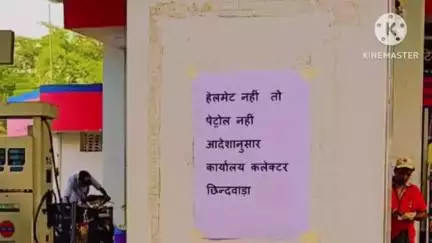 KINEMASTER
हेलमेट नहीं तो
पेट्रोल नहीं
आदेशानुसार
कार्यालय कलेक्टर
छिन्दवाड़ा